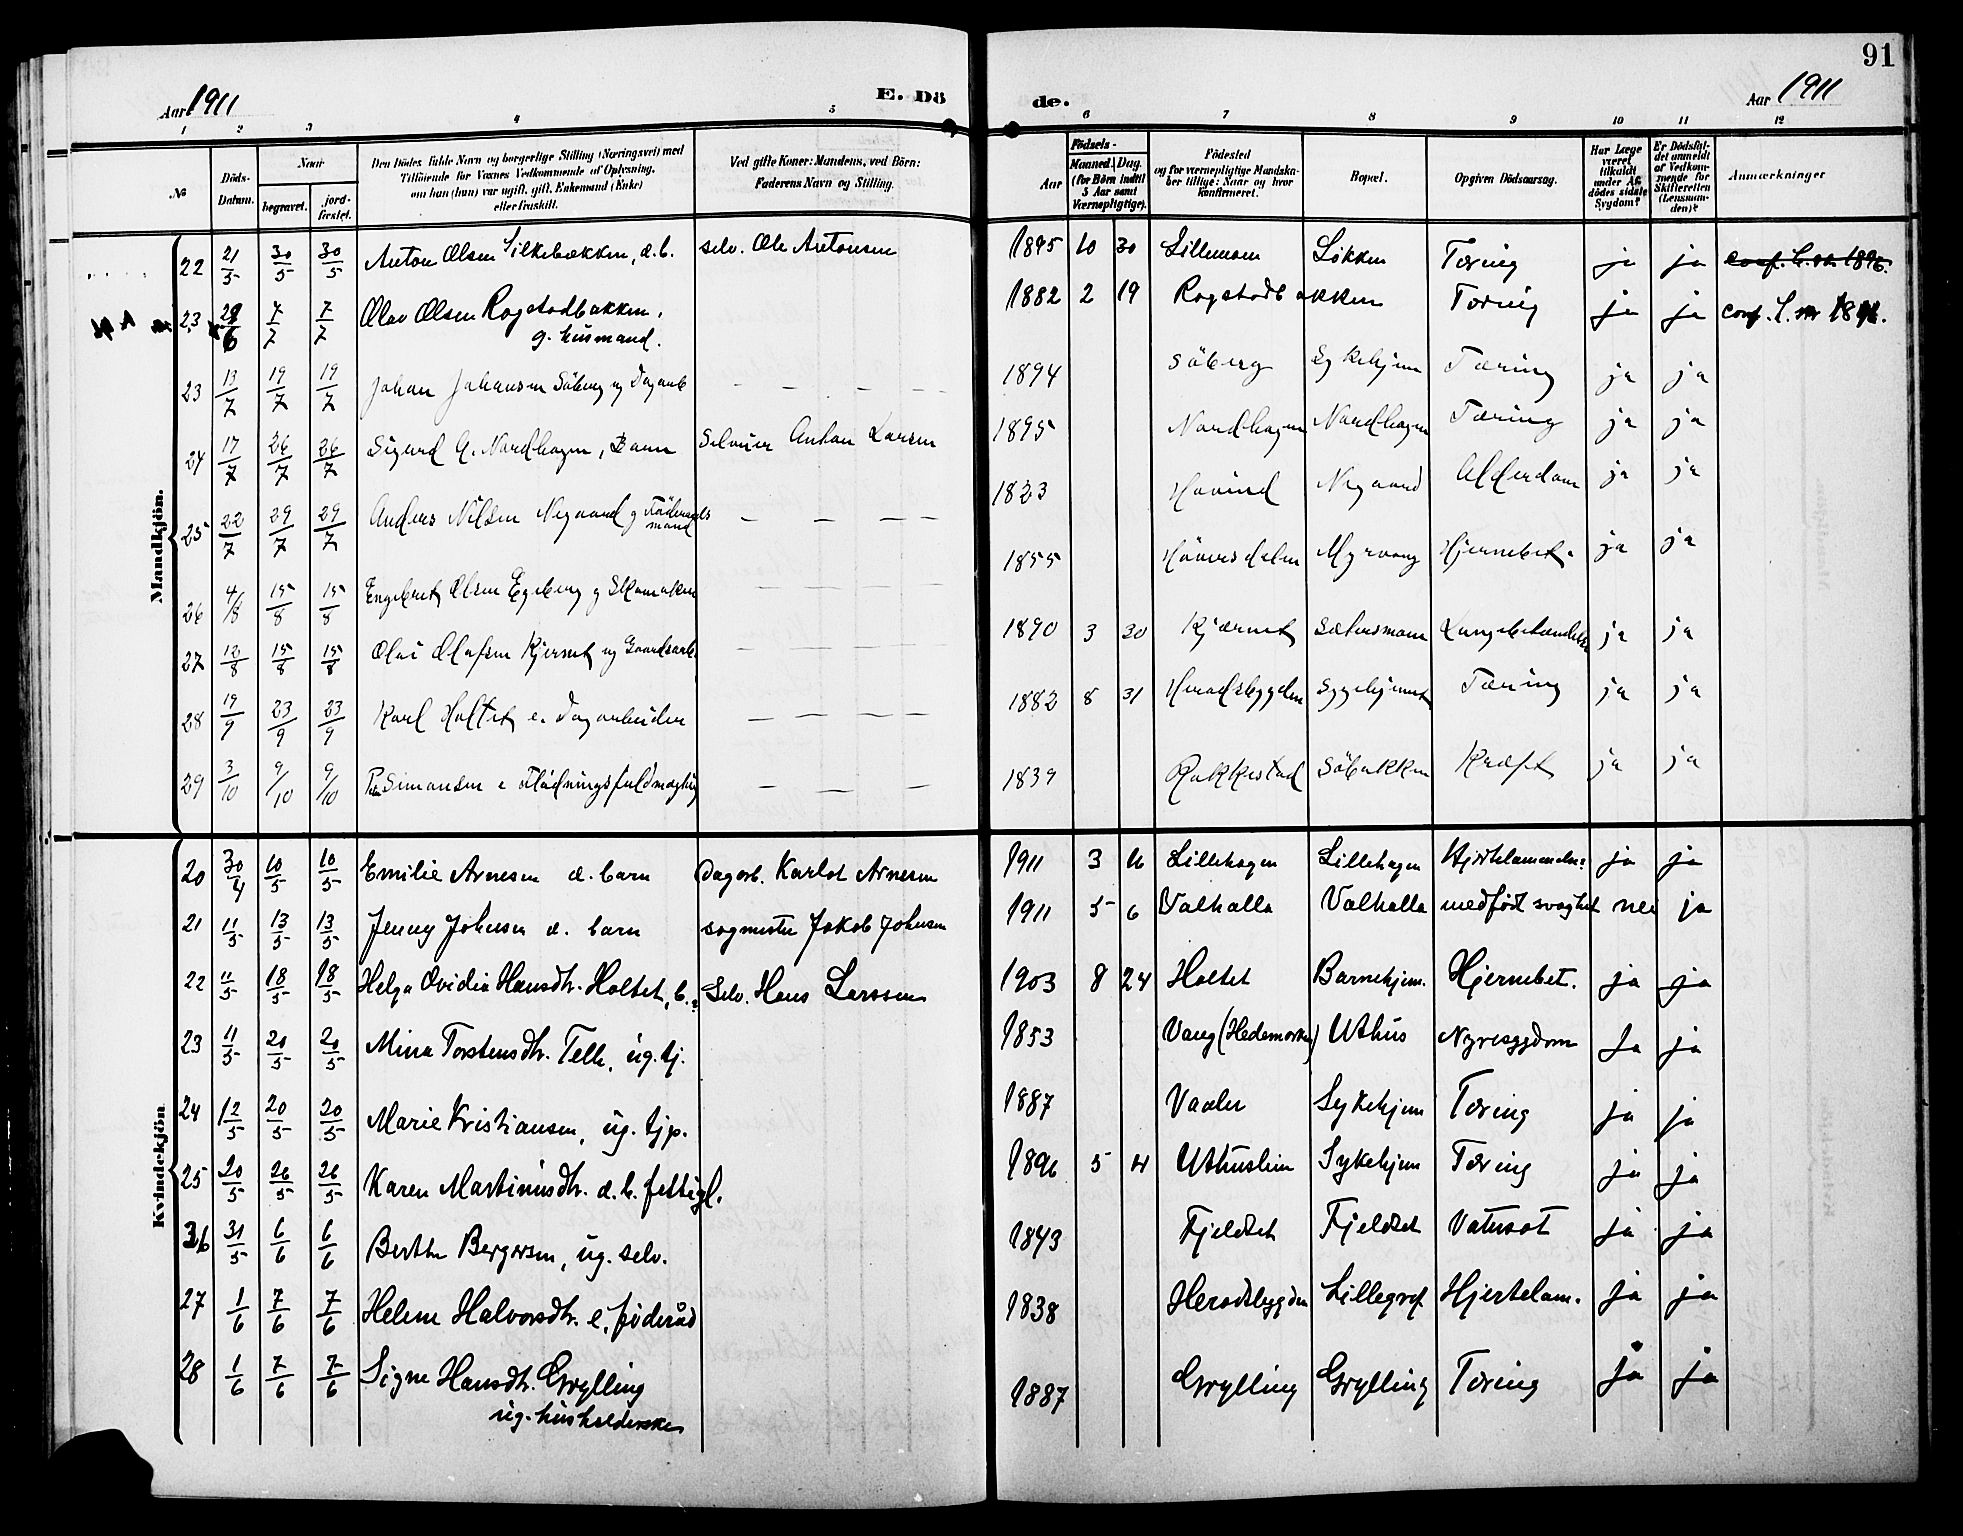 91
Aar 1911 E. Dö de. Aar 1911
1 2 3 4 5 6 7 8 9 10 11 12
№ Döds-Datum. Naar begravet. jord-fæstet. Den Dödes fulde Navn og borgerlige Stilling (Næringsvei) med Tilföiende for Voxnes Vedkommende af Oplysning, om han (hun) var ugift, gift, Enkemand (Enke) eller fraskilt. Ved gifte Koner: Mandens, ved Börn: Faderens Navn og Stilling. Födsels- Aar Maaned. Dag. (for Börn indtil 5 Aar samt Værnepligtige). Födested og for værnepligtige Mandskaber tillige: Naar og hvor konfirmeret. Bopæl. Opgiven Dödsaarsag. Har Læge været tilkaldt under Afdödes sidste Sygdom? Er Dödsfaldet anmeldt af Vedkommende for Skifteretten (Lensmanden)? Anmærkninger
Mandkjön.
22 21/5 30/5 30/5 Anton Olsen Silkebækken, d. b. selv. Ole Antonsen 1895 10 30 Lillemoen Lökken Tæring ja ja
23 28/6 7/7 7/7 Olav Olsen Rogstadbakken, g. husmand. 1882 2 19 Rogstadbakken Tæring ja ja conf.
23 13/7 19/7 19/7 Johan Johansen Söberg ug Dagarb — — — — 1894 Söberg Sykehjem Tæring ja ja
24 17/7 26/7 26/7 Sigurd A. Nordhagen, Barn Selveier Anton Larsen 1895 Nordhagen Nordhagen Tæring ja ja
25 22/7 29/7 29/7 Anders Nilsen Nygaard g Föderaads mand — — — — 1823 Hovind Nygaard Alderdom ja ja
26 4/8 15/8 15/8 Engebret Olsen Egeberg g Skomaker — — — — 1855 Haaversdalen Myrvang Hjernebet. ja ja
27 12/8 15/8 15/8 Olai Olafsen Kjernet ug Gaardsarb. — — — — 1890 3 30 Kjernet Sætersmoen Lungebetændelse ja ja
28 19/9 23/9 23/9 Karl Holtet e. Dagarbeider — — — — 1882 8 31 Heradsbygden Sygehjemet Tæring ja ja
29 3/10 9/10 9/10 P. Simonsen e Flödningsfuldmægtig — — — 1839 Rakkestad Söbakken Kræft ja ja
Kvindekjön
20 30/4 10/5 10/5 Emilie Arnesen d. barn Dagarb. Karlot Arnesen 1911 3 16 Lillehagen Lillehagen Hjertelammelse ja ja
21 11/5 13/5 13/5 Jenny Johnsen d. barn sagmester Jakob Johnsen 1911 5 6 Valhalla Valhalla medfödt svaghet nei ja
22 11/5 18/5 18/5 Helga Ovidia Hansdtr. Holtet, b. Selv. Hans Larssen 1903 8 24 Holtet Barnehjem. Hjernebet. ja ja
23 11/5 20/5 20/5 Mina Torstensdtr. Telle, ug. tj. 1853 Vang (Hedemarken) Uthus Nyresygdom Ja ja
24 12/5 20/5 20/5 Marie Kristiansen, ug. tjp. 1887 Vaaler Sykehjem Tæring ja ja
25 20/5 26/5 26/5 Karen Martinusdtr. d. b. fattigl. 1896 5 4 Uthuslien Sykehjem Tæring ja ja
26 31/5 6/6 6/6 Berthe Bergersen, ug. selv. 1843 Fjeldset Fjeldset Vatersot ja ja
27 1/6 7/6 7/6 Helene Halvorsdtr. e. föderåd 1838 Heradsbygden Lillegraf. Hjertelam. Ja ja
28 1/6 7/6 7/6 Signe Hansdtr. Grylling ug. husholderske 1887 Grylling Grylling Tæring Ja Ja